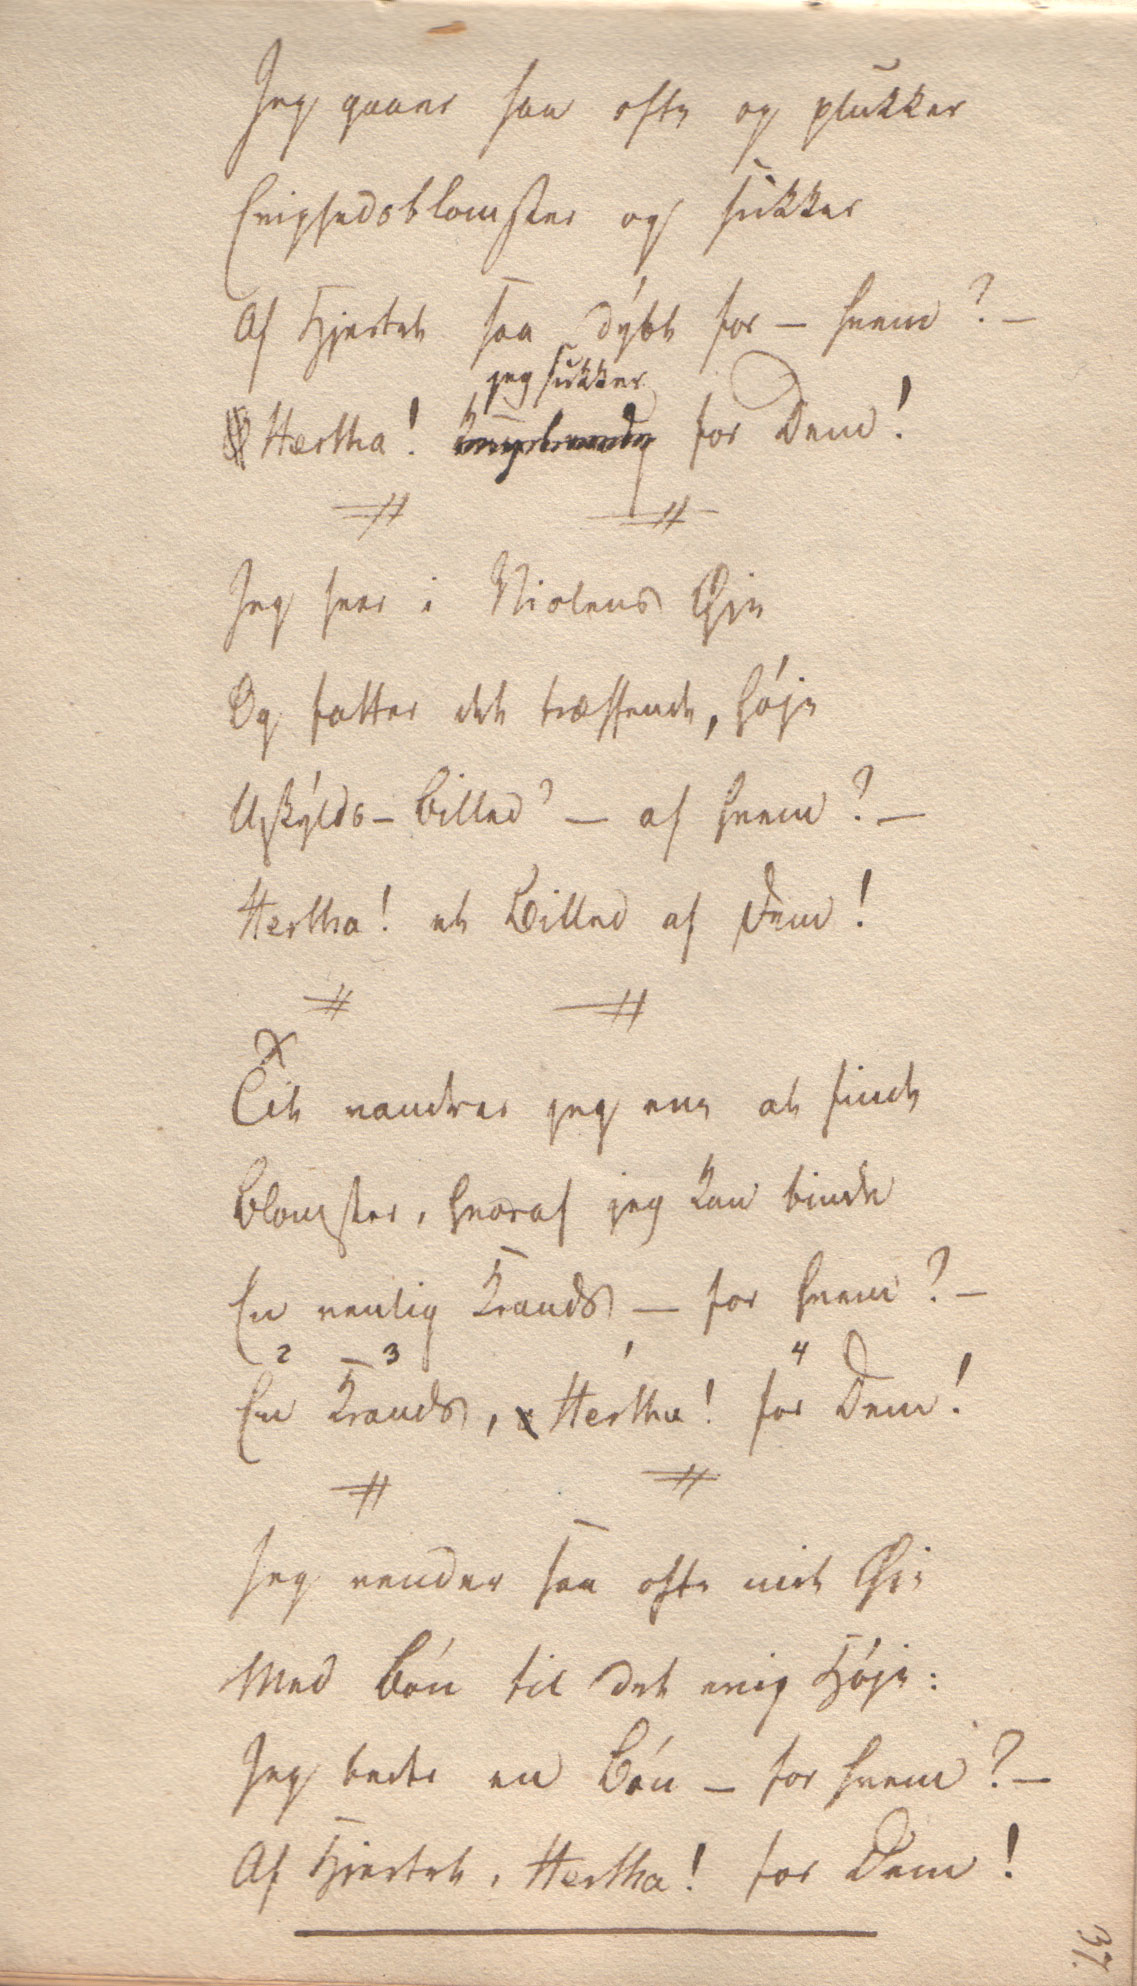 Jeg gaaer saa ofte og plukker
Evighedsblomster og sukker
Af Hjertet saa dybt for – hvem? –
jeg sukker
Hertha! for Dem!
Jeg seer i Violens Øie
Og fatter det træffende, høje
Uskylds-Billed? – af hvem? –
Hertha! et Billed af Dem!
Tit vandrer jeg ene at finde
Blomster, hvoraf jeg kan binde
En venlig Krands – for hvem? –
2 3 1 4
En Krands, Hertha! for Dem!
Jeg vender saa ofte mit Øie
Med Bön til det evig Höje:
Jeg beder en Bön – for hvem? –
Af Hjertet, Hertha! for Dem!
37.